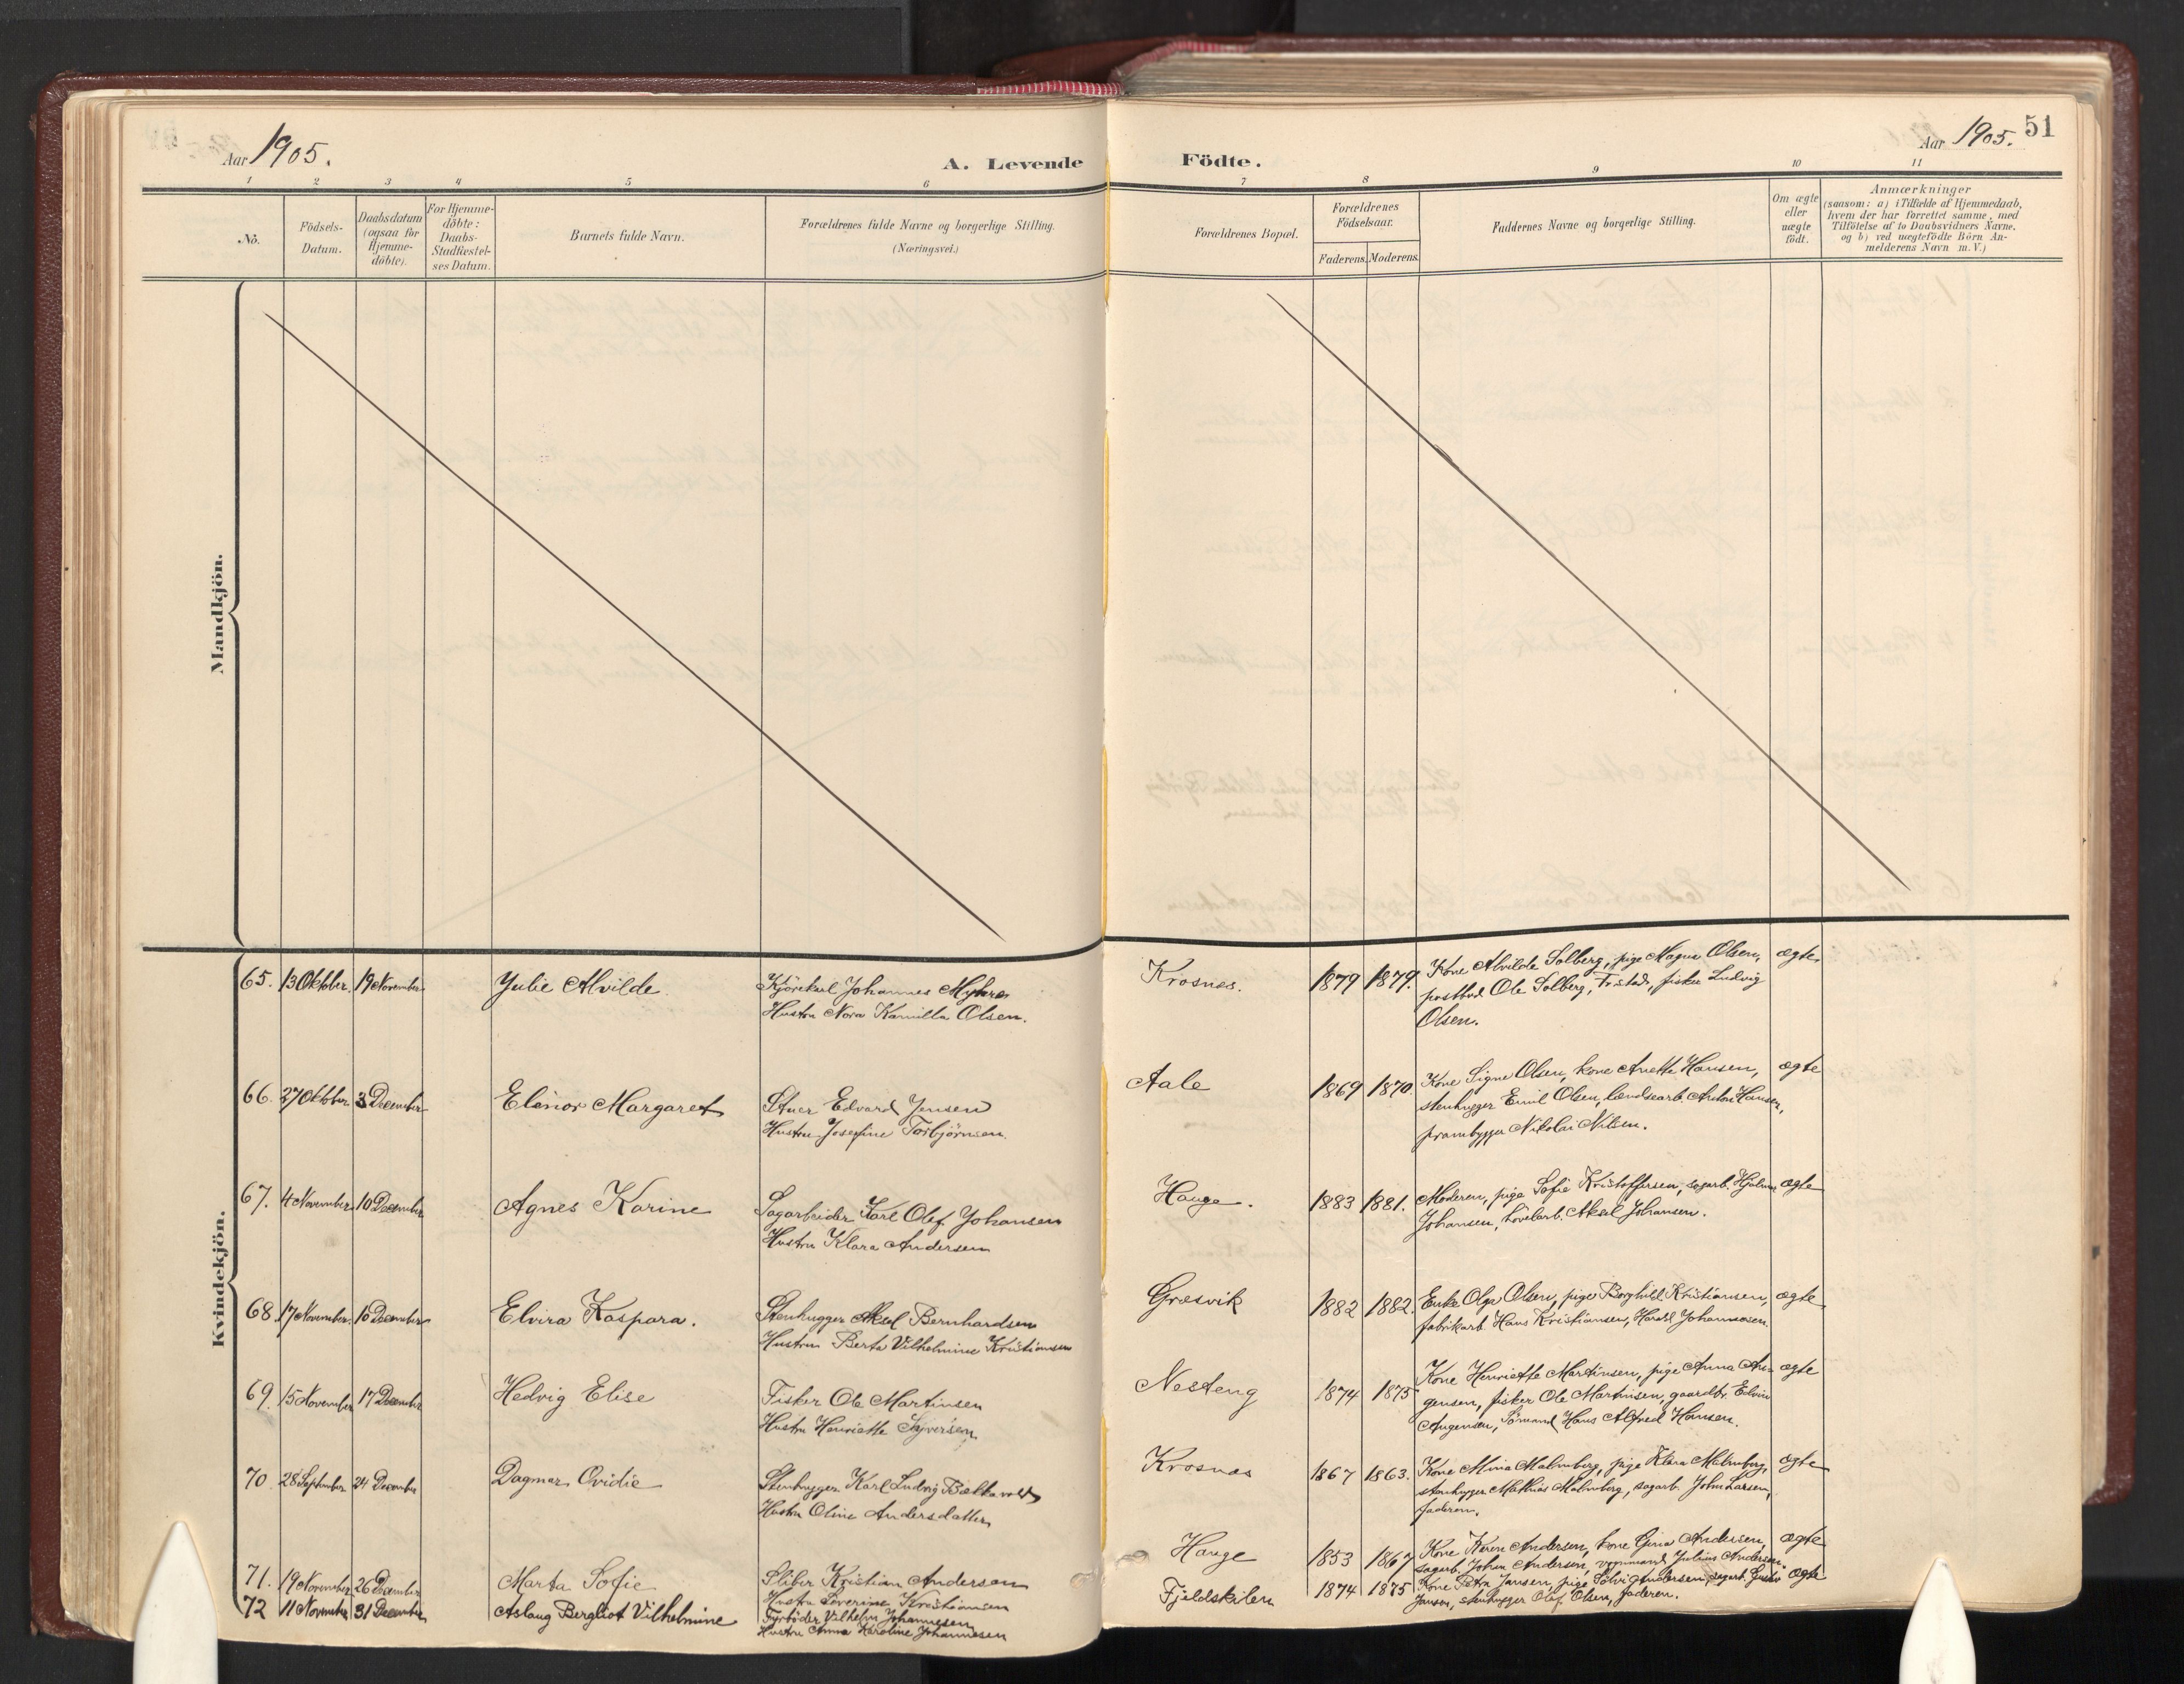 Aar 1905.
A. Levende Födte.
Aar 1905. 51
1 2 3 4 5 6 7 8 9 10 11
No.
Födsels-
Datum.
Daabsdatum
(ogsaa for
Hjemme-
döbte).
For Hjemme-
döbte:
Daabs-
Stadfæstel-
ses Datum.
Barnets fulde Navn.
Forældrenes fulde Navne og borgerlige Stilling.
(Næringsvei.)
Forældrenes Bopæl.
Forældrenes
Födselsaar.
Faderens. Moderens.
Faddernes Navne og borgerlige Stilling.
Om ægte
eller
uægte
födt.
Anmærkninger
(saasom: a) i Tilfælde af Hjemmedaab,
hvem der har forrettet samme, med
Tilföielse af to Daabsvidners Navne,
og b) ved uægtefödte Börn An-
melderens Navn m. V.)
Mandkjön.
Kvindekjön.
65. 13 Oktober. 19 November Julie Alvilde. Kjörekarl Johannes Myhre
Hustru Nora Kamilla Olsen.
Krosnes. 1879 1879. Kone Alvilde Solberg, pige Magna Olsen, ægte
postbud Ole Solberg, Fr.stad, fisker Ludvig
Olsen.
66. 27 Oktober 3 December Elinor Margaret Stuer Edvard Jensen
Hustru Josefine Torbjörnsen.
Aale 1869 1870. Kone Signe Olsen, kone Anette Hansen, ægte
stenhugger Emil Olsen, lændsearb. Anton Hansen,
prambygger Nikolai Nilsen.
67. 4 November 10 December Agnes Karine Sagarbeider Karl Olaf Johansen
Hustru Klara Andersen
Hauge. 1883 1881. Moderen, pige Sofie Kristoffersen, sagarb. Hjalmar ægte
Johansen, hövelarb. Aksel Johansen.
68. 17 November. 10 December Elvira Kaspara. Stenhugger Aksel Bernhardsen
Hustru Berta Vilhelmine Kristiansen
Græsvik 1882 1882. Enke Olga Olsen, pige Borghild Kristiansen, ægte
fabrikarb. Hans Kristiansen, Harald Johannesen.
69. 15 November 17 December Hedvig Elise Fisker Ole Martinsen
Hustru Henriette Syversen
Nesteng 1874 1875 Kone Henriette Martinsen, pige Anna An- ægte
gensen, fisker Ole Martinsen, gaardbr. Edvin
Angensen, Sömand Hans Alfred Hansen.
70. 28 September 24 December Dagmar Ovidie Stenhugger Karl Ludvig
Hustru Oline Andersdatter
Krosnes 1867 1863. Kone Mina Malmberg, pige Klara Malmberg, ægte
stenhugger Mathias Malmberg, sagarb. John Larsen,
faderen.
71. 19 November 26 December Marta Sofie Sliber Kristian Andersen
Hustru Severine Kristiansen
Hauge 1853 1867 Kone Karen Andersen, kone Gina Andersen, ægte
sagarb. Johan Andersen, Julius Andersen.
72 11 November 31 December Aslaug Bergliot Vilhelmine Fyrböder Vilhelm Johannesen
Hustru Anna Karoline Johannesen
Fjeldskilen 1874 1875 Kone Petra Jansen, pige Solvi Andersen, sagarb. Gustav ægte
Jansen, stenhugger Olaf Olsen, faderen.